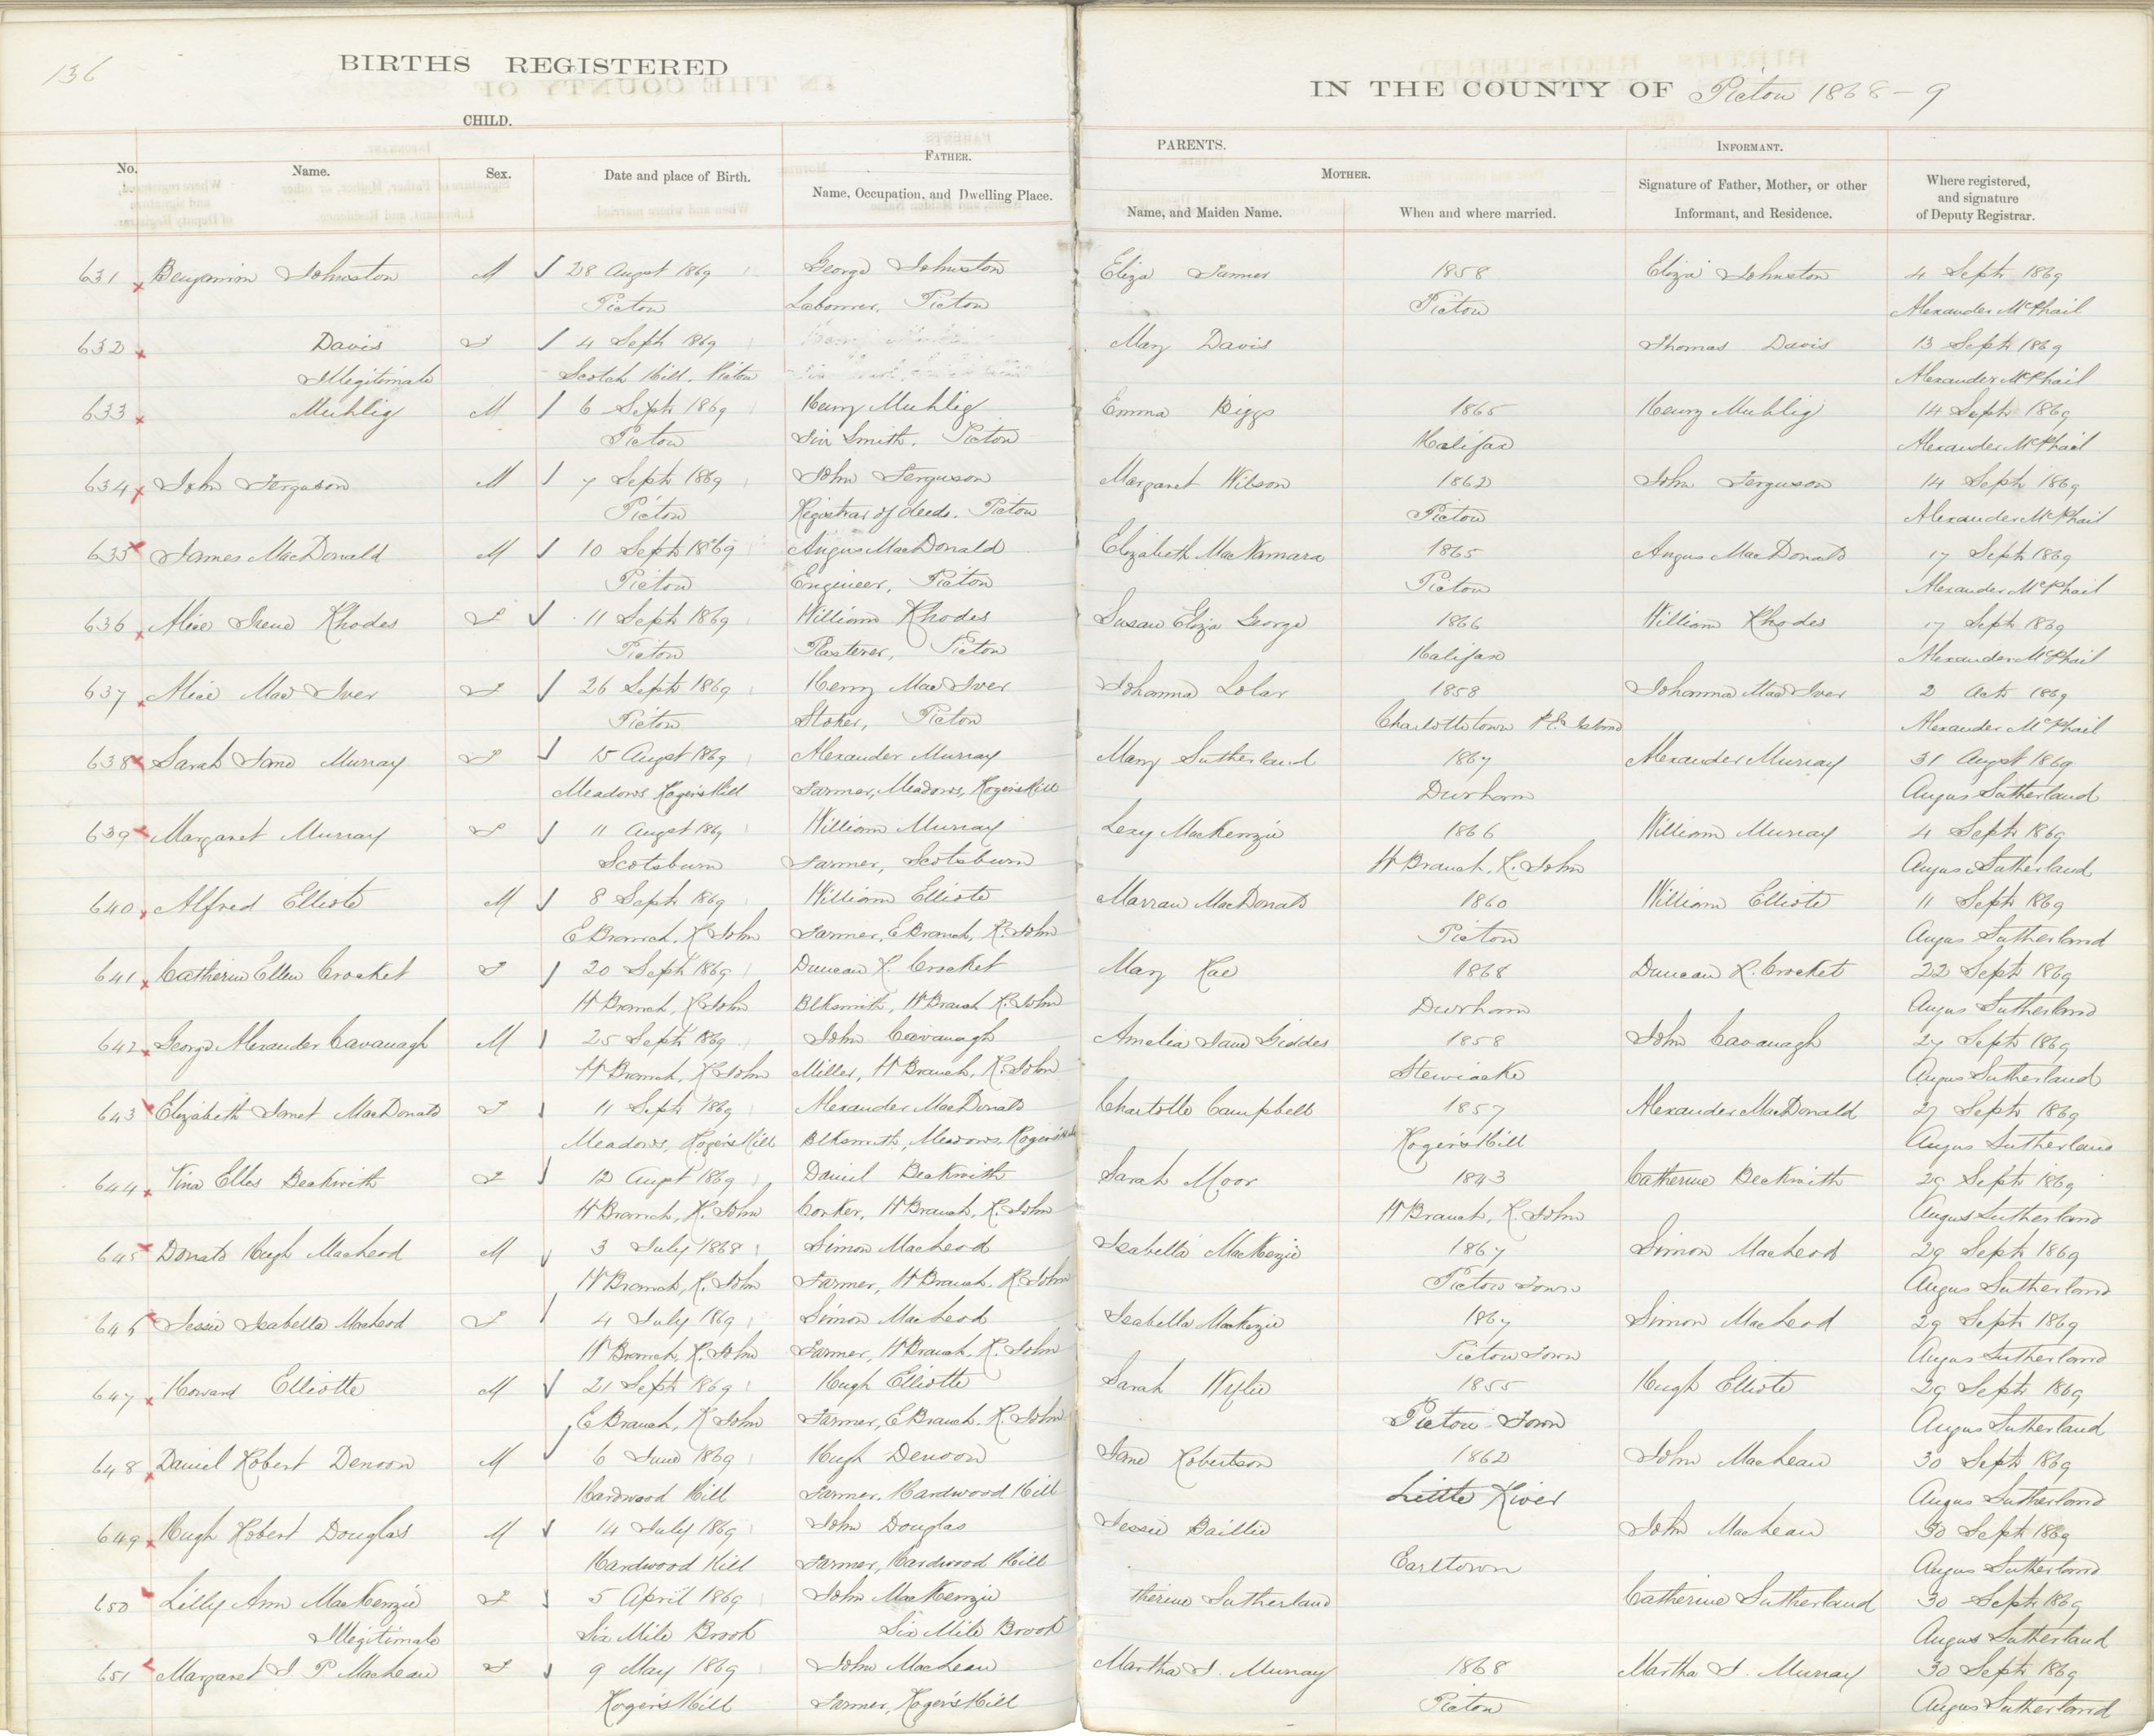 136
BIRTHS REGISTERED
IN THE COUNTY OF Pictou 1868-9
CHILD.
PARENTS.
INFORMANT.
No. Name. Sex. Date and place of Birth. FATHER. Name, Occupation, and Dwelling Place. MOTHER. Name, and Maiden Name. When and where married. Signature of Father, Mother, or other Informant, and Residence. Where registered, and signature of Deputy Registrar.
631 Benjamin Johnston M 28 August 1869 George Johnston Eliza Turner 1858 Eliza Johnston 4 Sept 1869
Pictou Labourer, Pictou Pictou Alexander McPhail
632 Davis F 4 Sept 1869 Mary Davis Thomas Davis 13 Sept 1869
Illegitimate Scotch Hill. Pictou Alexander McPhail
633 Muhlig M 6 Sept 1869 Henry Muhlig Emma Biggs 1865 Henry Muhlig 14 Sept 1869
Pictou Tin Smith. Pictou Halifax Alexander McPhail
634 John Ferguson M 7 Sept 1869 John Ferguson Margaret Wilson 1862 John Ferguson 14 Sept 1869
Pictou Registrar of deeds. Pictou Pictou Alexander McPhail
635 James MacDonald M 10 Sept 1869 Angus MacDonald Elizabeth MacNamara 1865 Angus MacDonald 17 Sept 1869
Pictou Engineer, Pictou Pictou Alexander McPhail
636 Alice Irene Rhodes F 11 Sept 1869 William Rhodes Susan Eliza George 1866 William Rhodes 17 Sept 1869
Pictou Plasterer, Pictou Halifax Alexander McPhail
637 Alice MacIver F 26 Sept 1869 Henry MacIver Johanna Lolar 1858 Johanna MacIver 2 Oct 1869
Pictou Stoker, Pictou Charlottetown P.E. Island Alexander McPhail
638 Sarah Jane Murray F 15 August 1869 Alexander Murray Mary Sutherland 1867 Alexander Murray 31 August 1869
Meadows Rogers Hill Farmer, Meadows, Rogers Hill Durham Angus Sutherland
639 Margaret Murray F 11 August 1869 William Murray Lexy MacKenzie 1866 William Murray 4 Sept 1869
Scotsburn Farmer, Scotsburn W Branch, R. John Angus Sutherland
640 Alfred Elliote M 8 Sept 1869 William Elliote Marran MacDonald 1860 William Elliote 11 Sept 1869
E Branch, R John Farmer, E Branch, R. John Pictou Angus Sutherland
641 Catherine Ellen Crocket F 20 Sept 1869 Duncan R. Crocket Mary Rae 1868 Duncan R. Crocket 22 Sept 1869
W Branch, R. John Blksmith, W Branch R. John Durham Angus Sutherland
642 George Alexander Cavanagh M 25 Sept 1869 John Cavanagh Amelia Jane Geddes 1858 John Cavanagh 27 Sept 1869
W Branch, R John Miller, W Branch, R. John Stewiacke Angus Sutherland
643 Elizabeth Janet MacDonald F 11 Sept 1869 Alexander MacDonald Charlotte Campbell 1857 Alexander MacDonald 27 Sept 1869
Meadows, Rogers Hill Blksmith, Meadows, Rogers Hill Rogers Hill Angus Sutherland
644 Vina Ellas Beckwith F 12 August 1869 Daniel Beckwith Sarah Moor 1843 Catherine Beckwith 29 Sept 1869
W Branch, R. John Corker, W Branch, R. John W Branch, R. John Angus Sutherland
645 Donald Hugh MacLeod M 3 July 1868 Simon MacLeod Isabella MacKezie 1867 Simon MacLeod 29 Sept 1869
W Branch, R. John Farmer, W Branch. R. John Pictou Town Angus Sutherland
646 Jessie Isabella MacLeod F 4 July 1869 Simon MacLeod Isabella MacKezie 1867 Simon MacLeod 29 Sept 1869
W Branch, R. John Farmer, W Branch, R. John Pictou Town Angus Sutherland
647 Howard Elliotte M 21 Sept 1869 Hugh Elliotte Sarah Wylie 1855 Hugh Elliote 29 Sept 1869
E Branch, R John Farmer, E Branch. R. John Pictou Town Angus Sutherland
648 Daniel Robert Denoon M 6 June 1869 Hugh Denoon Jane Robertson 1862 John MacLean 30 Sept 1869
Hardwood Hill Farmer. Hardwood Hill Little River Angus Sutherland
649 Hugh Robert Douglas M 14 July 1869 John Douglas Jessie Baillie John MacLean 30 Sept 1869
Hardwood Hill Farmer, Hardwood Hill Earltown Angus Sutherland
650 Lilly Ann MacKenzie F 5 April 1869 John MacKenzie therine Sutherland Catherine Sutherland 30 Sept 1869
Illegitimate Six Mile Brook Six Mile Brook Angus Sutherland
651 Margaret J P MacLean F 9 May 1869 John MacLean Martha J. Murray 1868 Martha J. Murray 30 Sept 1869
Rogers Hill Farmer, Rogers Hill Pictou Angus Sutherland